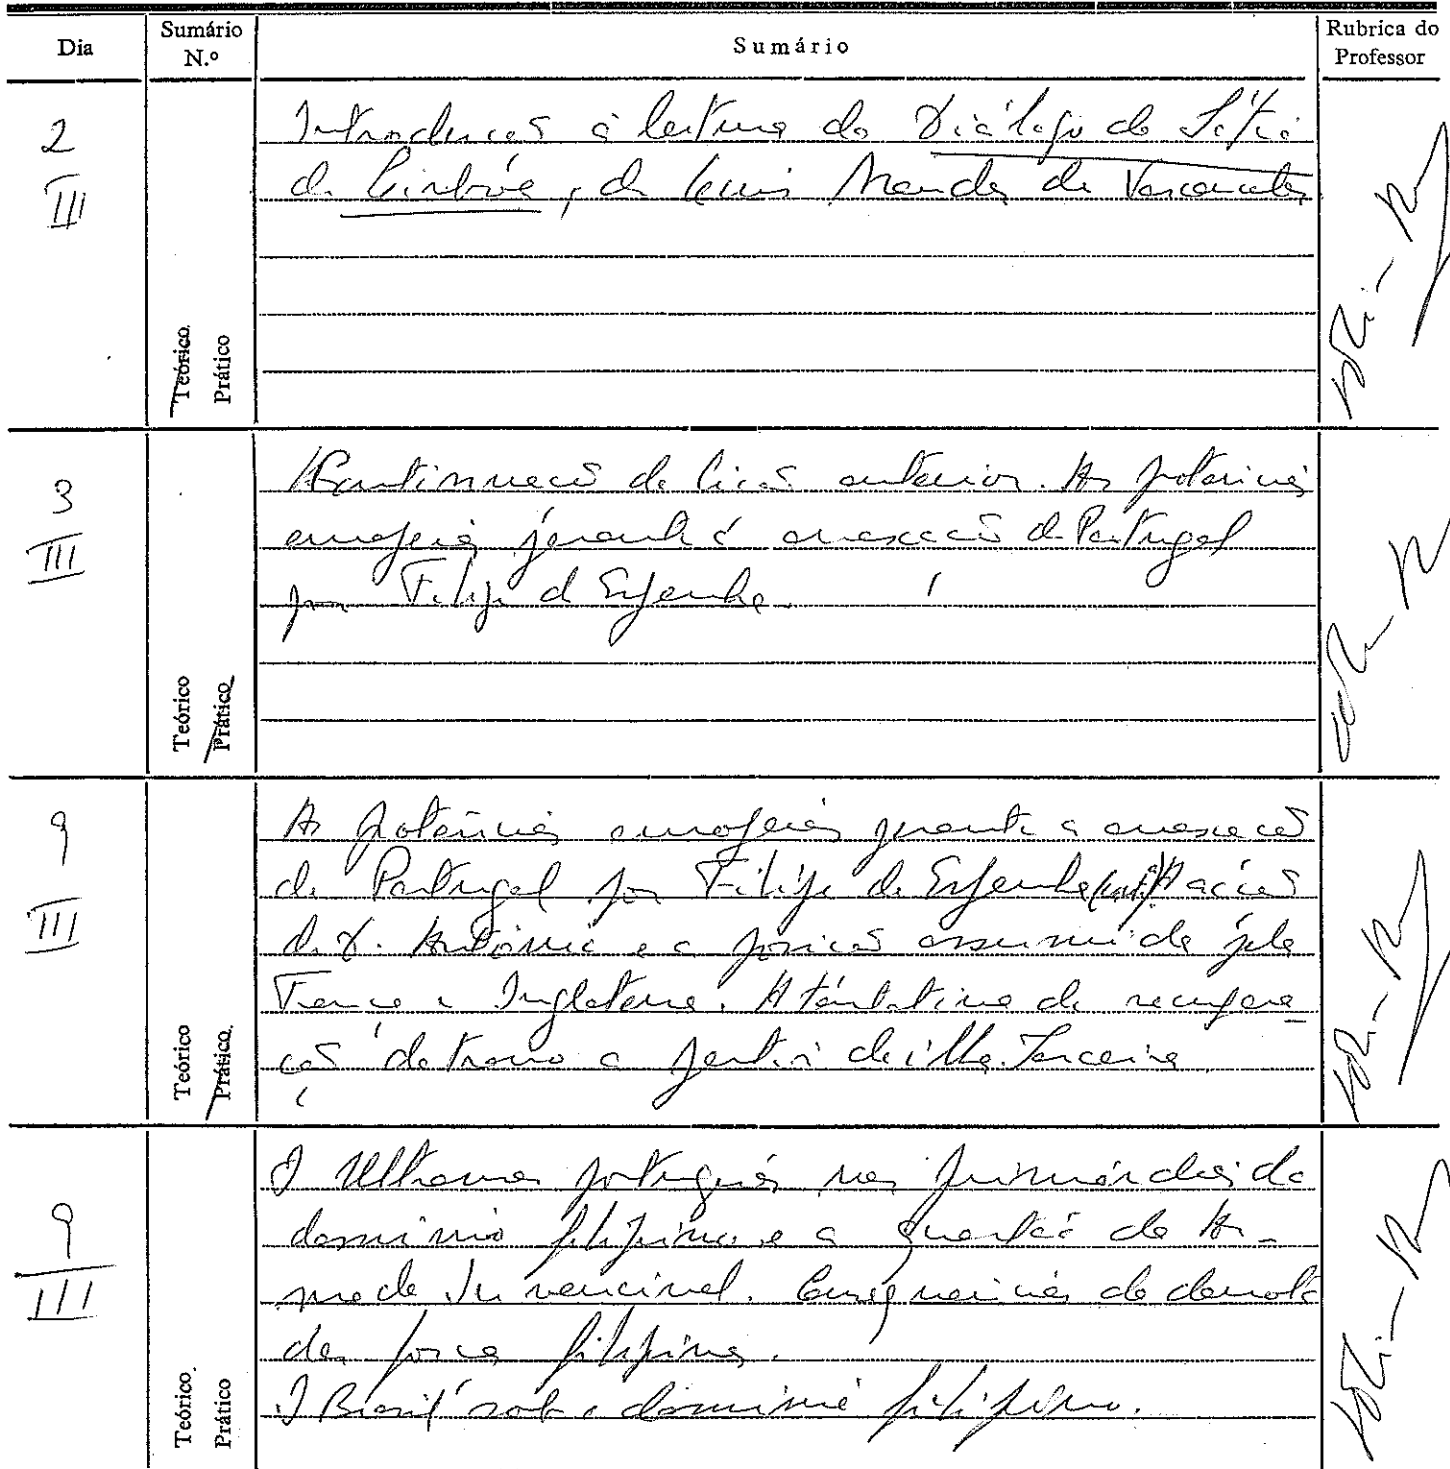 Dia Sumário N.º Sumário Rubrica do Professor
2
III
Introdução à leitura do Diálogo do Sítio
de Lisboa, de Luís Mendes de Vasconcelos
Teórico
Prático
3
III
Continuação da lição anterior. As potências
europeias perante a anexação de Portugal
por Filipe de Espanha.
Teórico
Prático
9
III
As potências europeias perante a anexação
de Portugal por Filipe de Espanha (cont.). A acção
de D. António e a posição assumida pela
França e Inglaterra. A tentativa de recupera-
ção do trono a partir da ilha Terceira
Teórico
Prático
9
III
O Ultramar português nos primórdios do
domínio filipino e a questão da Ar-
mada Invencível. Consequências da derrota
das forças filipinas.
O Brasil sob o domínio filipino.
Teórico
Prático